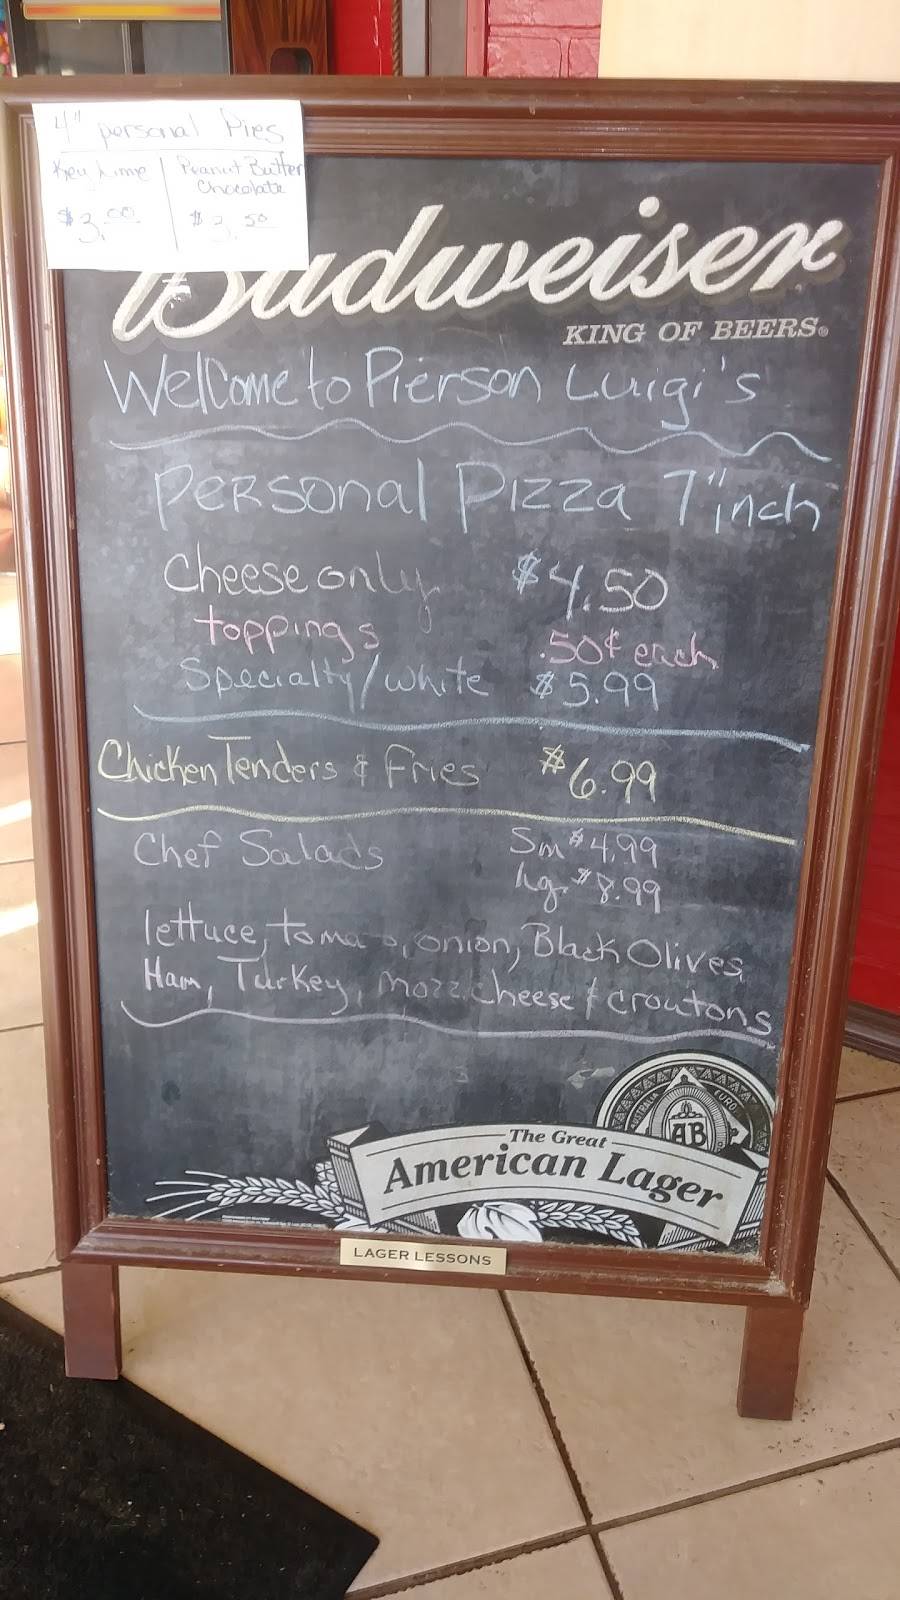 4" personal Pies
Key Lime
$3.00
Peanut Butter
Chocolate
$3.50
Budweiser
KING OF BEERS®
Welcome to Pierson Luigi's
Personal Pizza 7"inch
Cheese only $4.50
toppings .50¢ each
Specialty/white $5.99
Chicken Tenders & Fries $6.99
Chef Salads Sm $4.99
Lg. $8.99
lettuce, tomato, onion, Black Olives,
Ham, Turkey, mozz. cheese & croutons
AUSTRALIA EURO
AB
The Great
American Lager
LAGER LESSONS